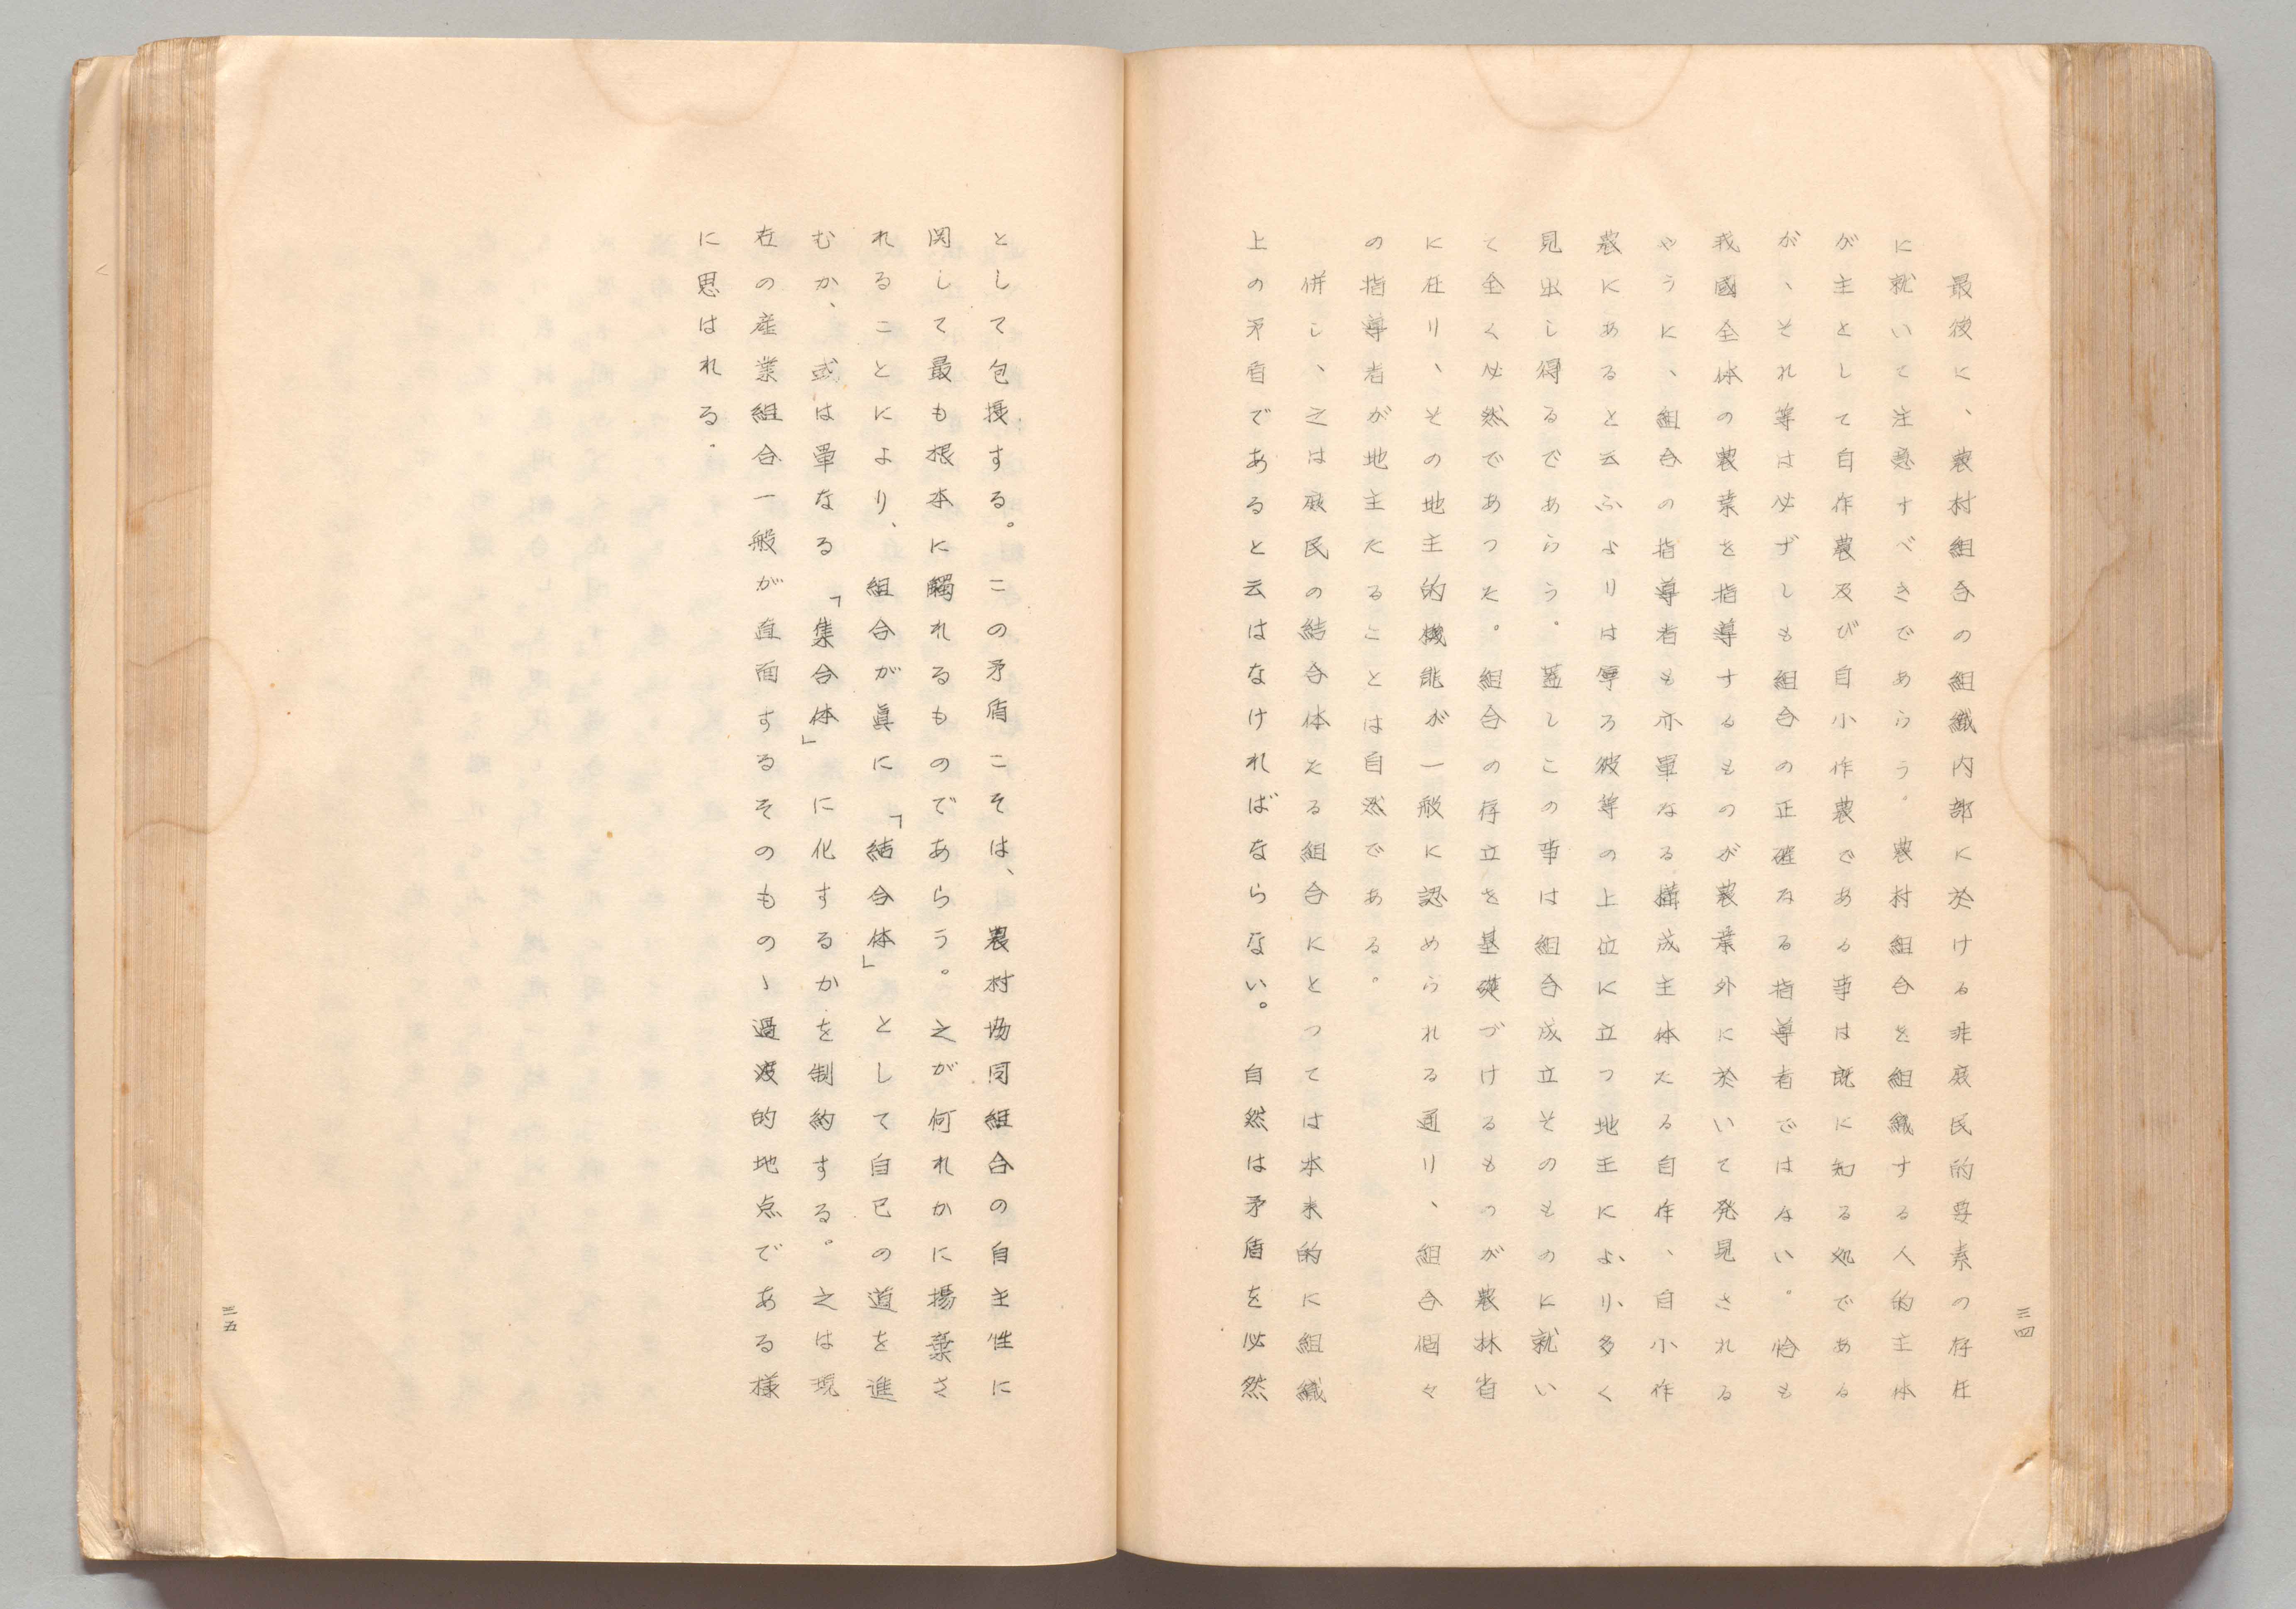 最後に、農村組合の組織内部に於ける非庶民的要素の存在
に就いて注意すべきであらう。農村組合を組織する人的主体
が主として自作農及び自小作農である事は既に知る処である
が、それ等は必ずしも組合の正確なる指導者ではない。恰も
我國全体の農業を指導するものが農業外に於いて発見される
やうに、組合の指導者も亦単なる構成主体たる自作、自小作
農にあると云ふよりは寧ろ彼等の上位に立つ地主により多く
見出し得るであらう。蓋しこの事は組合成立そのものに就い
て全く必然であつた。組合の存立を基礎づけるもつが農林省
に在り、その地主的機能が一般に認められる通り、組合個々
の指導者が地主たることは自然である。
併し、之は庶民の結合体たる組合にとつては本来的に組織
上の矛盾であると云はなければならない。自然は矛盾を必然
三四
として包摂する。この矛盾こそは、農村協同組合の自主性に
関して最も根本に觸れるものであらう。之が何れかに揚棄さ
れることにより、組合が眞に「結合体」として自己の道を進
むか、或は單なる「集合体」に化するかを制約する。之は現
在の産業組合一般が直面するそのものゝ過渡的地点である様
に思はれる.
三五